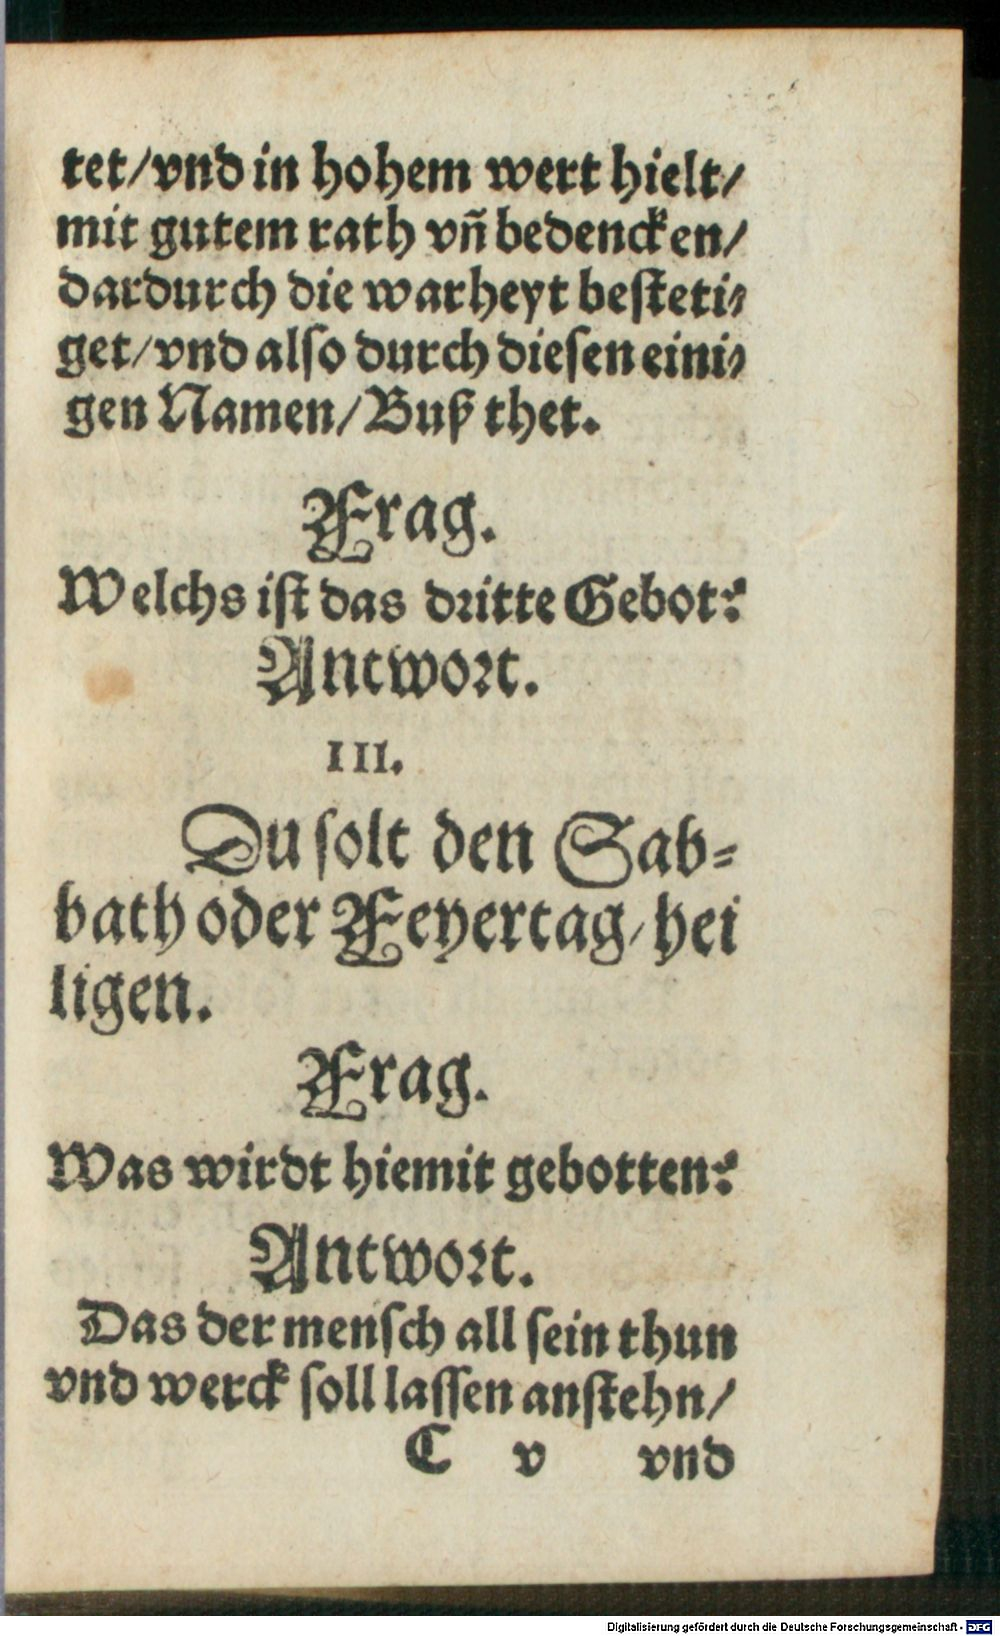 tet/vnd in hohem wert hielt/
mit gutem rath vñ bedencken/
dardurch die warheyt besteti⸗
get/vnd also durch diesen eini⸗
gen Namen/Buß thet.
Frag.
Welchs ist das dritte Gebot?
Antwort.
III.
Du solt den Sab⸗
bath oder Feyertag/hei
ligen.
Frag.
Was wirdt hiemit gebotten?
Antwort.
Das der mensch all sein thun
vnd werck soll lassen anstehn/
C v vnd
Digitalisierung gefördert durch die Deutsche Forschungsgemeinschaft - DFG